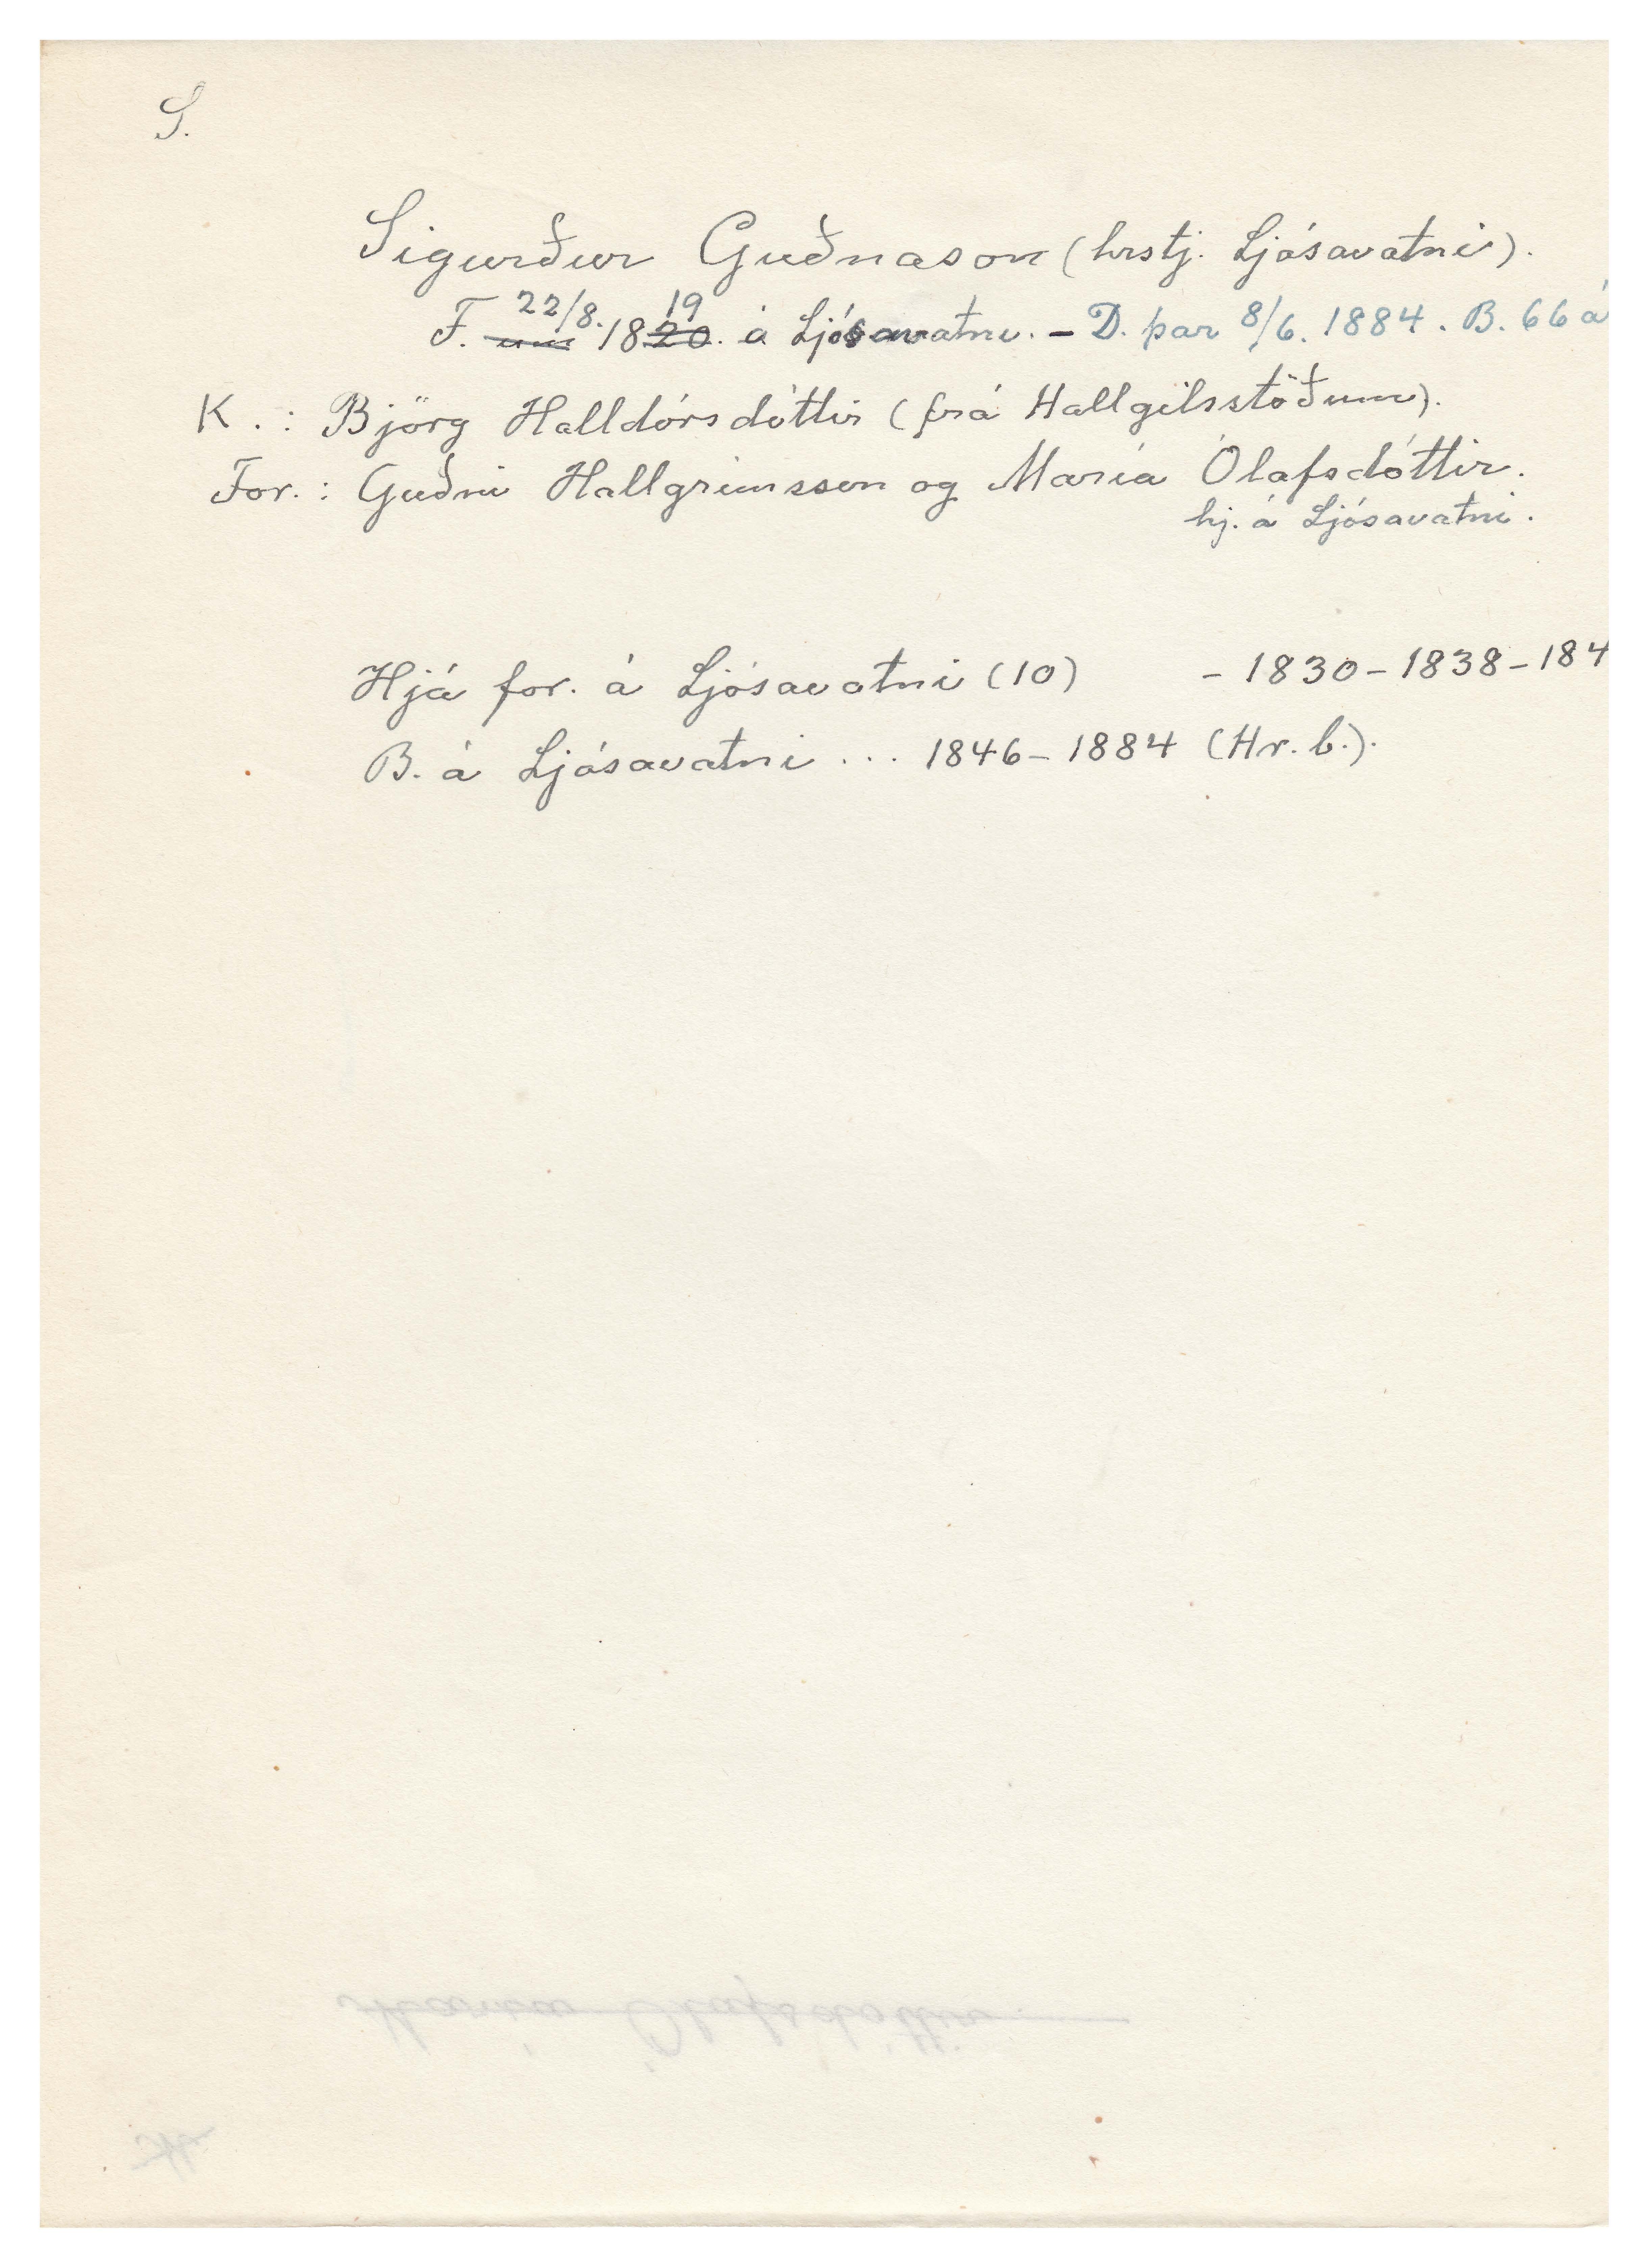 S.
Sigurður Guðnason (hrstj. Ljósavatni).
22/8. 19
F. um 1820. á Ljósavatni. – D. þar 8/6. 1884. B. 66 á
K. : Björg Halldórsdóttir (frá Hallgilsstöðum).
For. : Guðni Hallgrímsson og María Ólafsdóttir.
hj. á Ljósavatni.
Hjá for. á Ljósavatni (10) – 1830 – 1838 – 184
B. á Ljósavatni ... 1846 – 1884 (Hr. b.).
María Ólafsdóttir